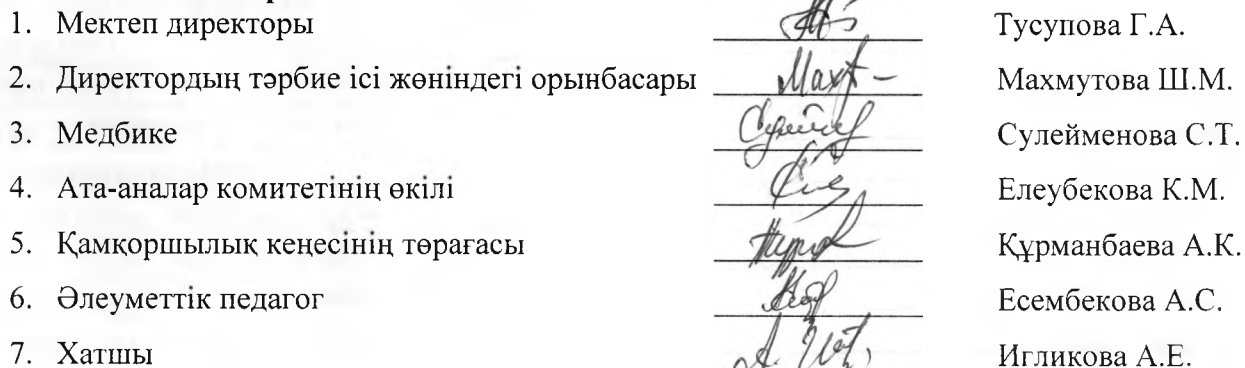 1. Мектеп директоры Тусупова Г.А.
2. Директордың тәрбие ісі жөніндегі орынбасары Махмутова Ш.М.
3. Медбике Сулейменова С.Т.
4. Ата-аналар комитетінің өкілі Елеубекова К.М.
5. Қамқоршылық кеңесінің төрағасы Құрманбаева А.К.
6. Әлеуметтік педагог Есембекова А.С.
7. Хатшы Игликова А.Е.